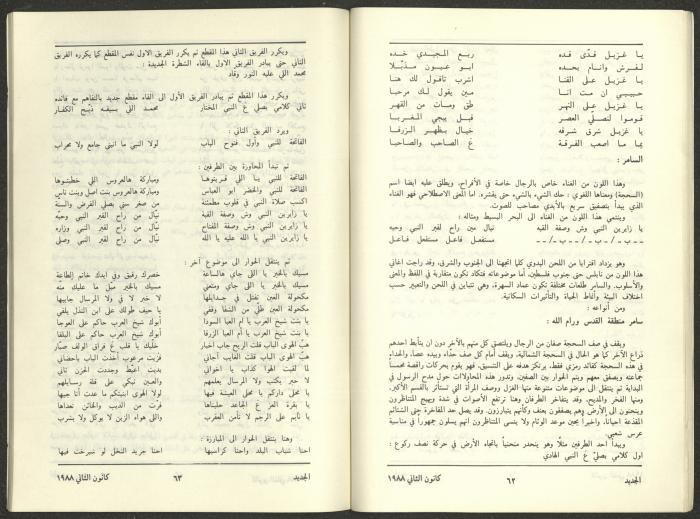 يا غزيل قدّي قده ربع المجيدي خده
لفرش وانام بحده ابو عيون مدبّلا
يا غزيل على القنا اشرب تاقول لك هنا
حبيبي ان مت انا مين يقول لك مرحبا
يا غزيل على النهر طق ومات من القهر
قوموا لنصلّي العصر قبل ييجي المغربا
يا غزيل شرق شرقه خيال بظهر الزرقا
يما ما اصعب الفرقة ع الصاحب والصاحبا
السامر :
وهذا اللون من الغناء خاص بالرجال خاصة في الأفراح، ويطلق عليه ايضا اسم
(السحجة) ومعناها اللغوي : حك الشيء بالشيء حتى يقشره. اما المعنى الاصطلاحي فهو الغناء
الذي يبدأ بتصفيق سريع بالأيدي مصاحب للصوت.
وينتمي هذا اللون من الغناء الى البحر البسيط ومثاله :
يا زايرين النبي وش وصفة القبة نيال مين راح لقبر النبي وحيه
مستفعل فاعل مستفعل فاعل
وهو يزداد اقترابا من اللحن البدوي كلما اتجهنا الى الجنوب والشرق، وقد راجت اغاني
هذا اللون من نابلس حتى جنوب فلسطين، أما موضوعاته فتكاد تكون متقاربة في اللفظ والمعنى
والأسلوب. والسامر طلعات مختلفة تكون عماد السهرة، وهي تتباين في اللحن والتعبير حسب
اختلاف البيئة وأنماط الحياة والتأثيرات السكانية.
ومن أنواعه :
سامر منطقة القدس ورام الله :
ويقف في صف السحجة صفان من الرجال ويلتصق كل منهم بالآخر دون ان يتأبط احدهم
ذراع الآخر كما هو الحال في السحجة الشمالية، ويقف أمام كل صف حدّاء وبيده عصا، والحداء
في هذه السحجة كقائد رمزي فقط، يرتكز هدفه على التنسيق، فهو يقوم بحركات راقصة محمساً
جماعته ويصفق معهم ويتم الحوار بين الصفين، وتدور هذه المحاولات حول مدح الرسول في
البداية ثم ينتقل الى موضوعات متنوعة منها الغزل ووصف المرأة التي تستأثر بالقسم الأكبر،
ومنها الفخر والمديح. وقد يتفاخر الطرفان وهنا ترتفع الأصوات في شدة ويهيج المتناظرون
وينحنون الى الأرض وهم يصفقون بعنف وكأنهم يتبارزون، وقد يصل حد المفاخرة حتى الشتائم
المقذعة احيانا. واخيرا يجيئ موعد الوئام ولا ينسى المتناظرون انهم يسلون جمهوراً في مناسبة
عرس شعبي.
ويبدأ احد الطرفين مثلاً وهو ينحدر منحنياً باتجاه الأرض في حركة نصف ركوع :
اول كلامي بصلّي ع النبي الهادي
الجديد ٦٢ كانون الثاني ١٩٨٨
ويكرر الفريق الثاني هذا المقطع ثم يكرر الفريق الاول نفس المقطع كما يكرره الفريق
الثاني حتى يبادر الفريق الاول بالقاء الشطرة الجديدة :
محمد اللي عليه النور وقاد
ويكرر هذا المقطع ثم يبادر الفريق الأول الى القاء مقطع جديد بالتفاهم مع قائده
ثاني كلامي بصلي ع النبي المختار محمد اللي بسيفه ذبح الكفار
ويرد الفريق الثاني :
الفاتحة للنبي وأول فتوح الباب لولا النبي ما انبنى جامع ولا محراب
ثم تبدأ المحاورة بين الطرفين :
الفاتحة للنبي يا اللي قريتوها ومباركة هالعروس اللي خطبتوها
الفاتحة للنبي والخضر ابو العباس ومباركة هالعروس بنت اصل وبنت ناس
اكسب صلاة النبي في قلوب مطمئنة من صغر سني بصلي الفرض والسنة
يا زايرين النبي وش وصفة القبة نيّال من راح لقبر النبي وحيّه
يا زايرين النبي وش وصفة المفتاح نيّال من راح لقبر النبي وزاره
يا زايرين النبي يا الله عليه يا الله نيّال من راح لقبر النبي وصلى
ثم ينتقل الحوار الى موضوع آخر :
مسيك بالخير يا اللي جاي هالساعة خصرك رقيق وفي ايدك خاتم إلطاعة
مسيك بالخير يا اللي جاي ومتعني مسيك بالخير ميل ما عليك منّه
مكحولة العين تفتل في جدايلها لا خير لا في ولا الرجال جابيها
مكحولة العين طلّي من الشفا وقفي يا حيف طولك على ابن النذل يلفي
يا بنت شيخ العرب يا ام العبا السودا أبوك شيخ العرب حاكم على العوجا
يا بنت شيخ العرب يا أم العبا الزرقا أبوك شيخ العرب حاكم على البلقا
هبّ الهوى الباب قلت الريح جاب اخبار خليك يا قلب ع فراق الولف صبّار
هبّ الهوى الباب قلت الغايب أجاني فزيت مرعوب أخذت الباب باحضاني
لما لقيت الهوا كذاب يا اخواني بديت اعيّط وجددت الحزن ثاني
لا حبر يكتب ولا المرسال يعلمهم والعين تبكي على قلة رسايلهم
يا محلى داركم يا محلى العيشة فيها لولا الهوى ابنيتكم ما عدت أنا جيها
يا بقرة العز ع الجاعد حلبناها فرّت من الذيب والخاين نعداها
يا نايم على الرجم لا تأمن العقرب واللي هواه الزين لا يوكل ولا بشرب
وهنا ينتقل الحوار الى المبارزة :
احنا شباب البلد واحنا كراسيها احنا جريد النخل لو شبرخت فيها
الجديد ٦٣ كانون الثاني ١٩٨٨